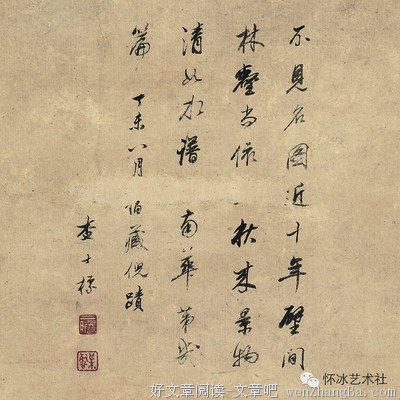 不見名圖近十年壁間
林壑尚依秋来景物
清如南華第幾
篇 丁未八月 伯藏倪蹟
查士標
怀冰艺术社
好文章阅读-文章吧
wenzhangba.com